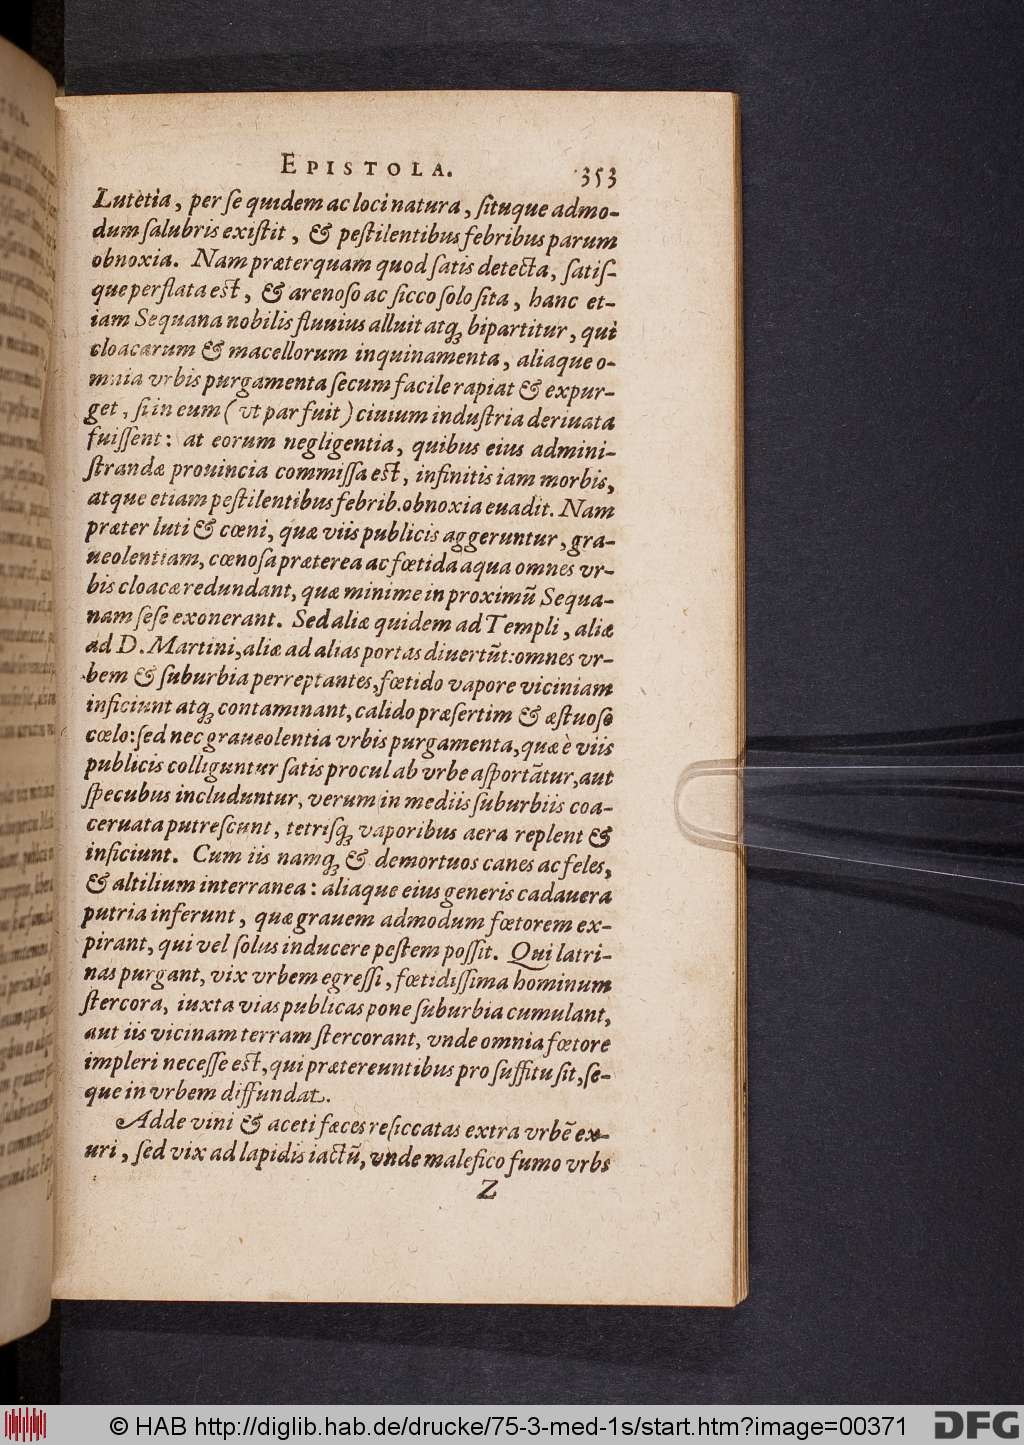 EPISTOLA. 353
Lutetia, per se quidem ac loci natura, situque admo-
dum salubris existit, & pestilentibus febribus parum
obnoxia. Nam præterquam quod satis detecta, satis-
que perflata est, & arenoso ac sicco solo sita, hanc et-
iam Sequana nobilis fluuius alluit atq; bipartitur, qui
cloacarum & macellorum inquinamenta, aliaque o-
mnia vrbis purgamenta secum facile rapiat & expur-
get, si in eum (vt par fuit) ciuium industria deriuata
fuissent: at eorum negligentia, quibus eius admini-
strandæ prouincia commissa est, infinitis iam morbis,
atque etiam pestilentibus febrib. obnoxia euadit. Nam
præter luti & cœni, quæ viis publicis aggeruntur, gra-
ueolentiam, cœnosa præterea ac fœtida aqua omnes vr-
bis cloacæ redundant, quæ minime in proximũ Sequa-
nam sese exonerant. Sed aliæ quidem ad Templi, aliæ
ad D. Martini, aliæ ad alias portas diuertũt: omnes vr-
bem & suburbia perreptantes, fœtido vapore viciniam
inficiunt atq; contaminant, calido præsertim & æstuoso
cœlo: sed nec graueolentia vrbis purgamenta, quæ è viis
publicis colliguntur satis procul ab vrbe asportãtur, aut
specubus includuntur, verum in mediis suburbiis coa-
ceruata putrescunt, tetrisq; vaporibus aera replent &
inficiunt. Cum iis namq; & demortuos canes ac feles,
& altilium interranea: aliaque eius generis cadauera
putria inferunt, quæ grauem admodum fœtorem ex-
pirant, qui vel solus inducere pestem possit. Qui latri-
nas purgant, vix vrbem egressi, fœtidissima hominum
stercora, iuxta vias publicas pone suburbia cumulant,
aut iis vicinam terram stercorant, vnde omnia fœtore
impleri necesse est, qui prætereuntibus pro suffitu sit, se-
que in vrbem diffundat.
Adde vini & aceti fæces resiccatas extra vrbẽ ex-
uri, sed vix ad lapidis iactũ, vnde malefico fumo vrbs
Z
© HAB http://diglib.hab.de/drucke/75-3-med-1s/start.htm?image=00371 DFG